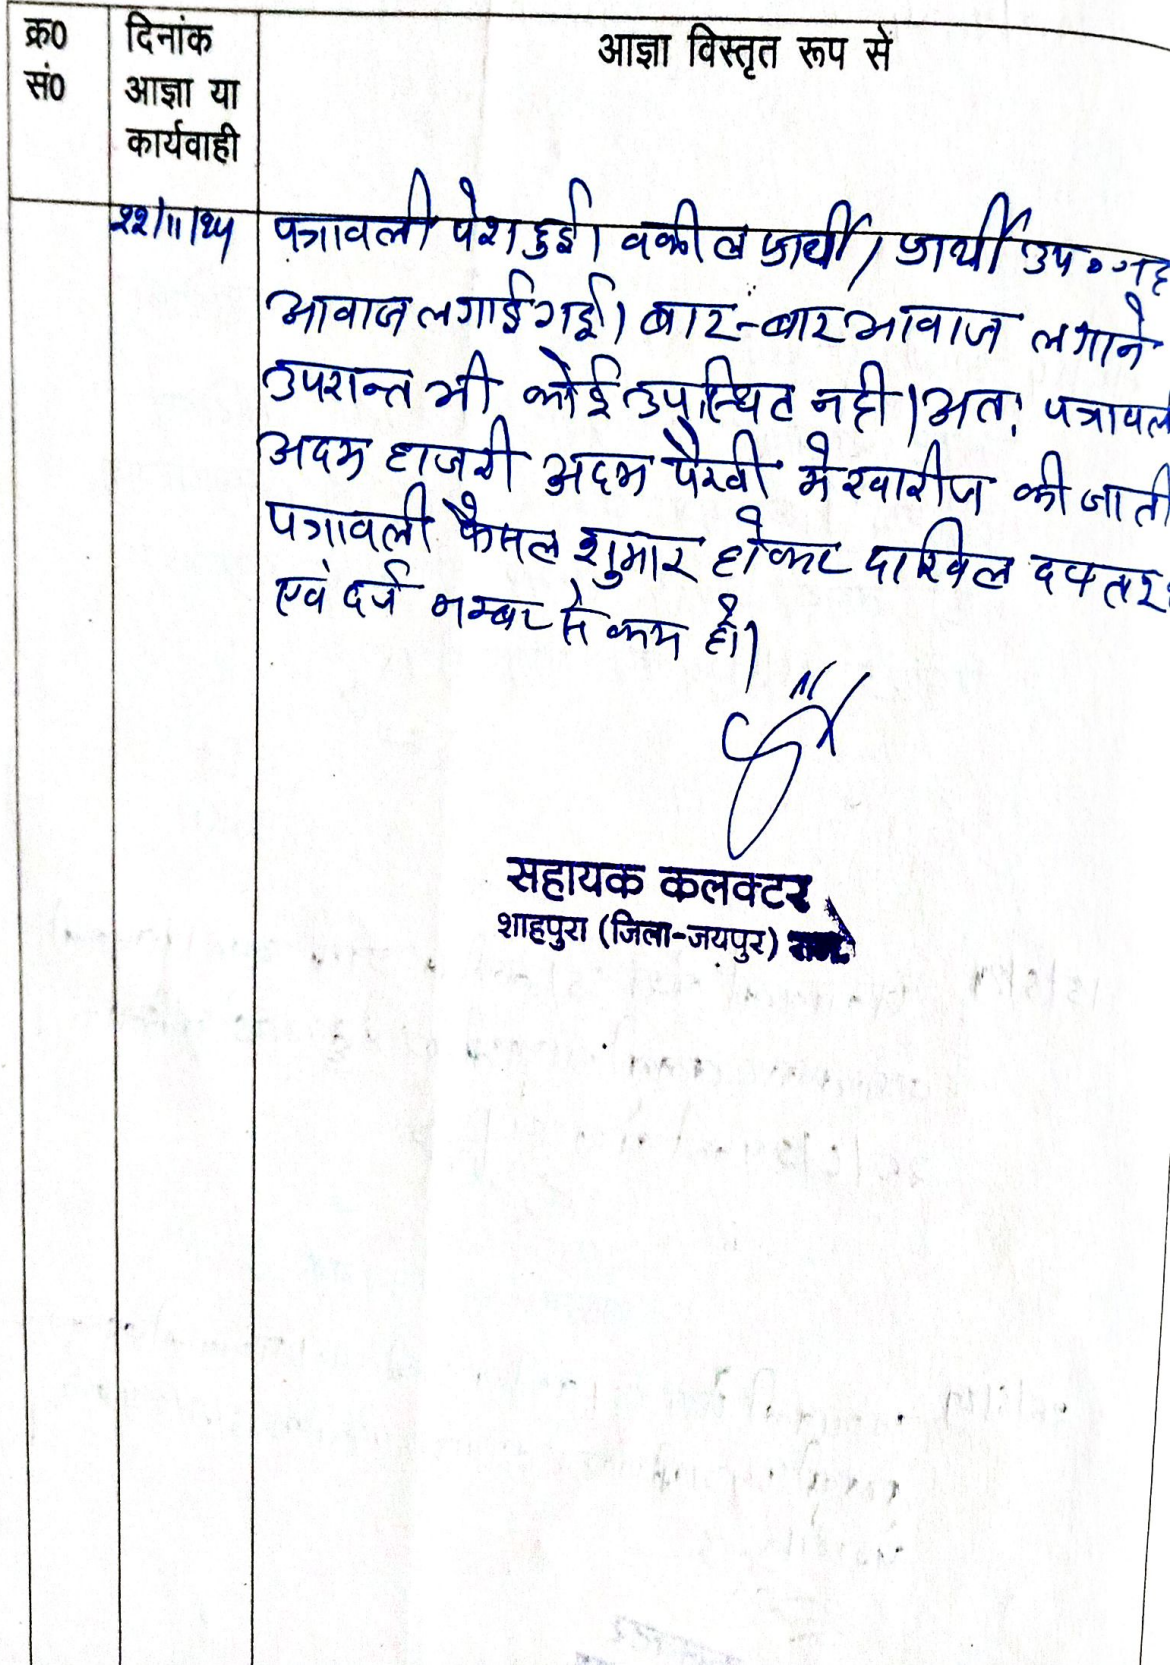 क्र0 सं0
दिनांक आज्ञा या कार्यवाही
आज्ञा विस्तृत रूप से
22/11/24
पत्रावली पेश हुई। वकील प्रार्थी / प्रार्थी उप० नह
आवाज लगाई गई। बार-बार आवाज लगाने
उपरान्त भी कोई उपस्थित नही। अतः पत्रावल
अदम हाजरी अदम पैरवी मे खारीज की जाती
पत्रावली फैसल शुमार होकर दाखिल दफ्तर
एवं दर्ज नम्बर से कम हो।
सहायक कलक्टर
शाहपुरा (जिला-जयपुर) राज.